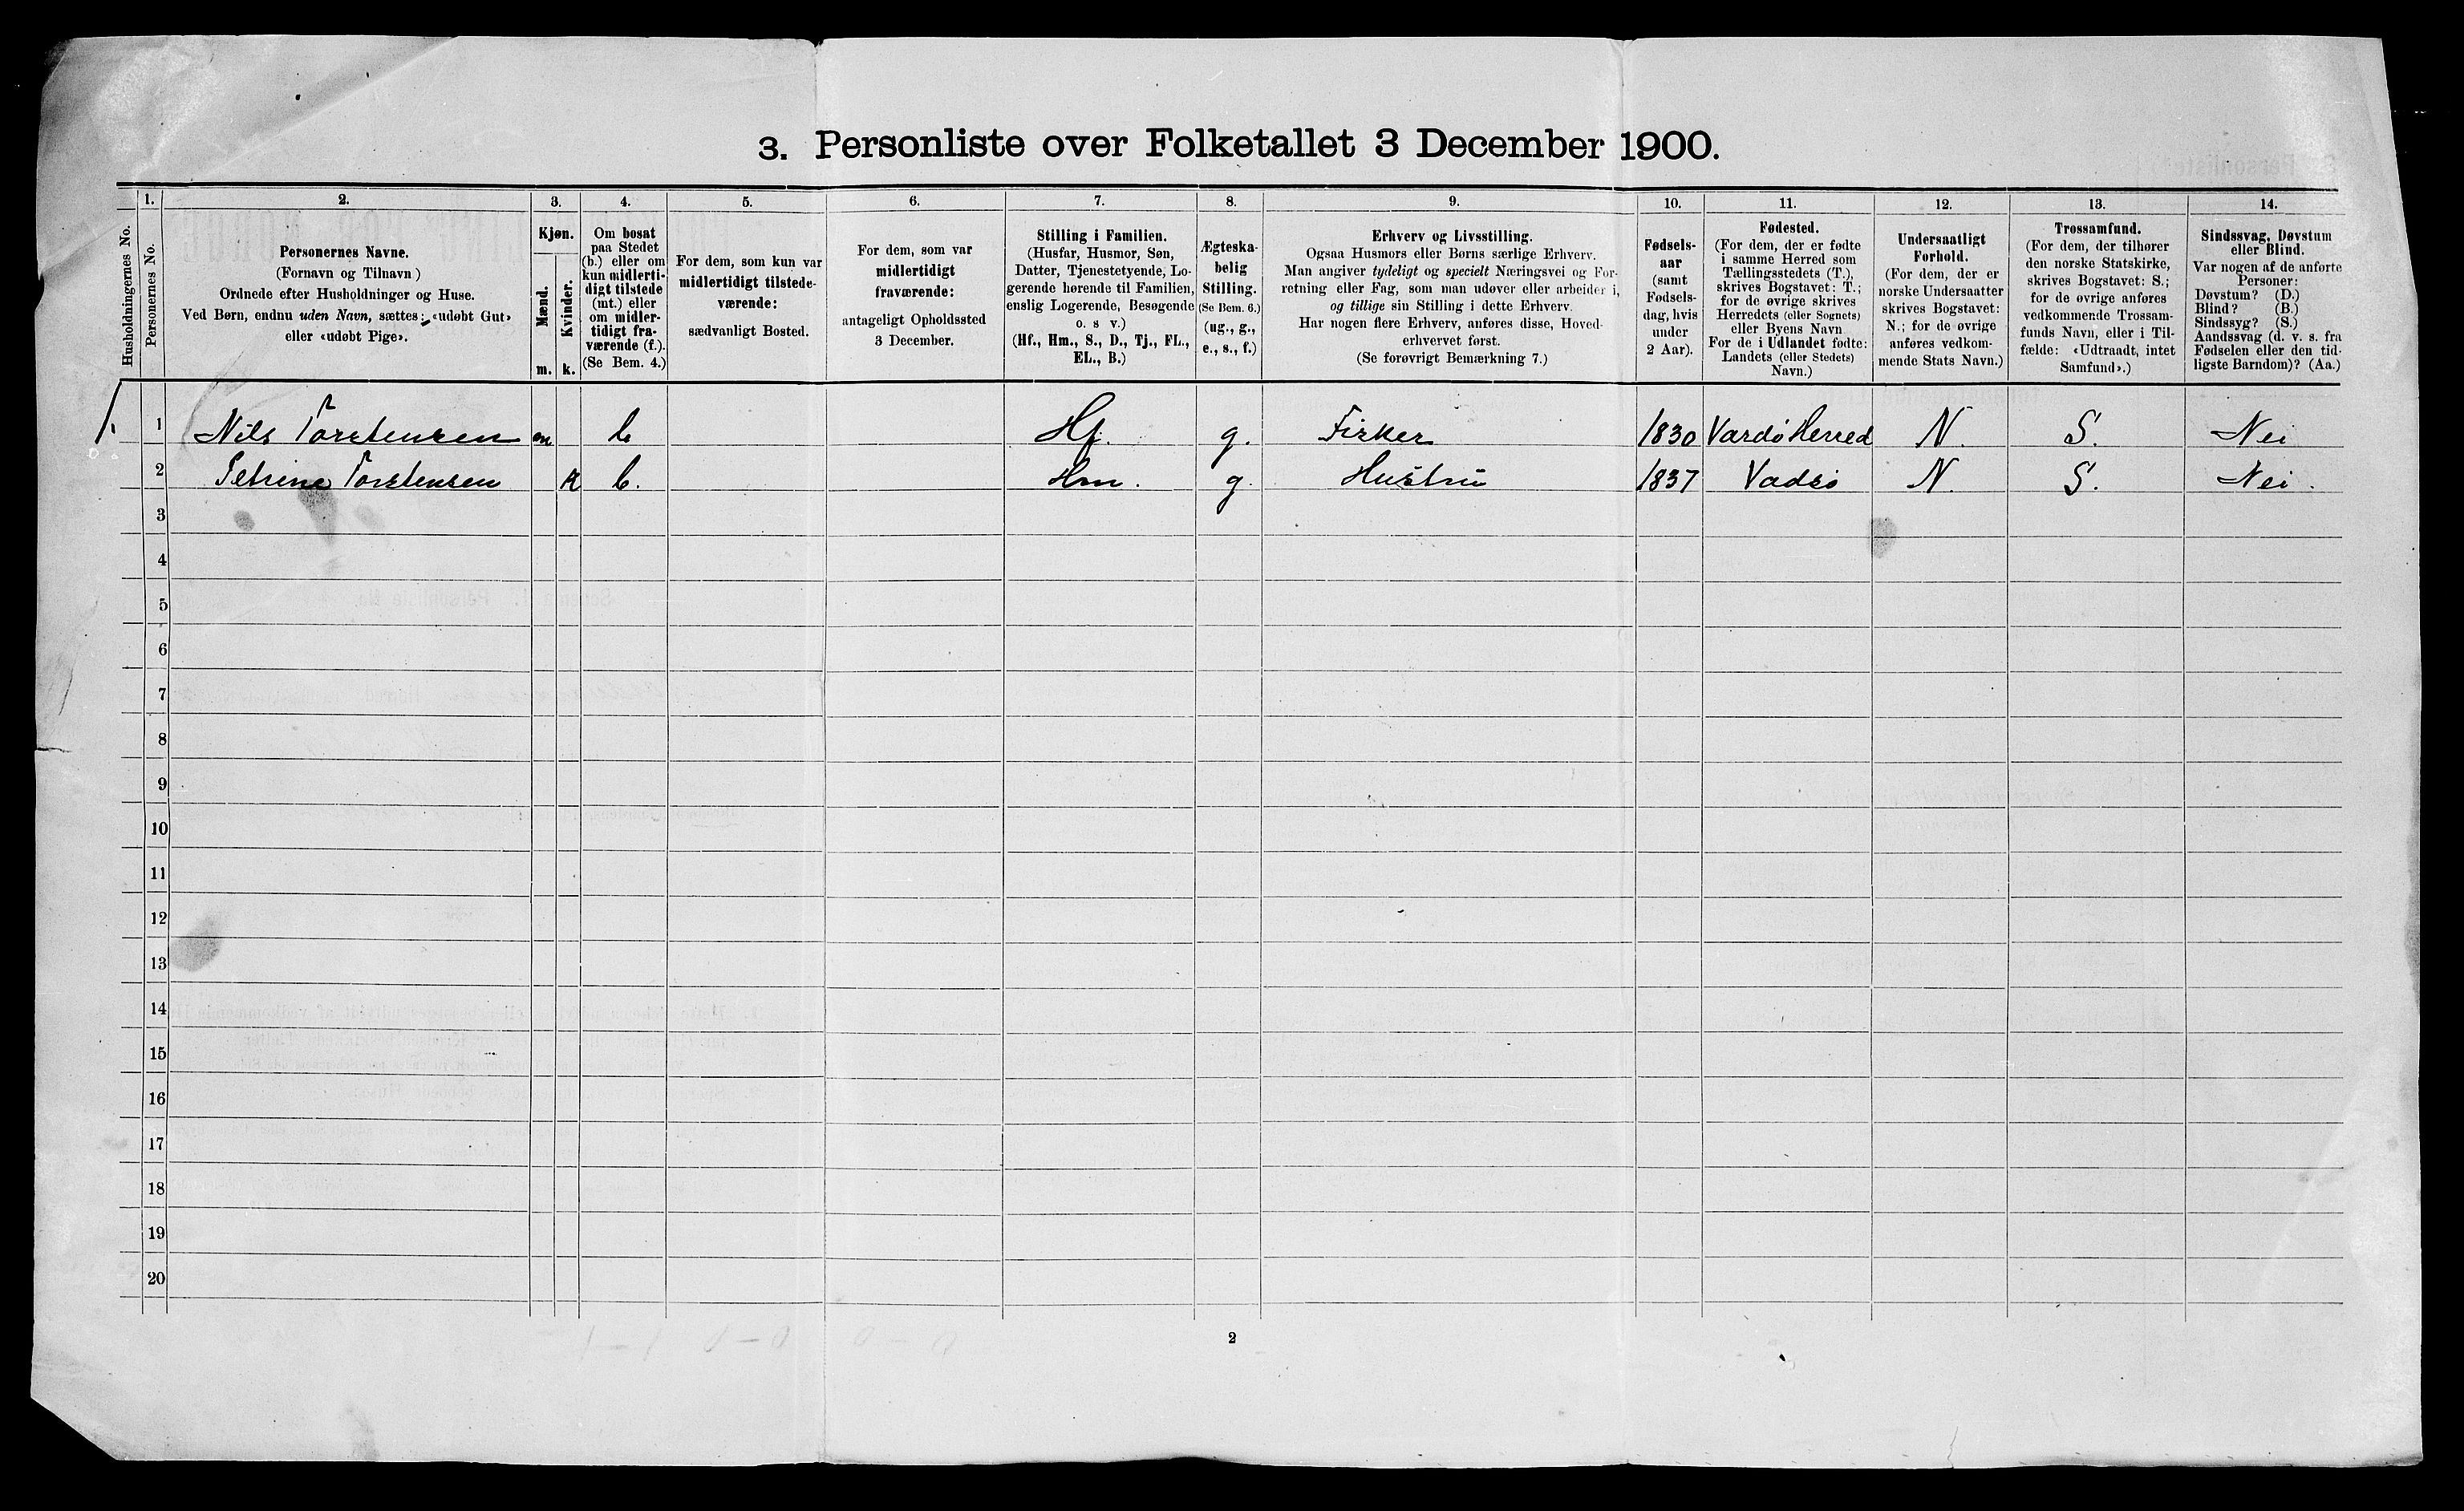 3. Personliste over Folketallet 3 December 1900.
Husholdningernes No.
1.
Personernes No.
2.
Personernes Navne.
(Fornavn og Tilnavn)
Ordnede efter Husholdninger og Huse.
Ved Børn, endnu uden Navn, sættes: «udøbt Gut»
eller «udøbt Pige».
3.
Kjøn.
Mænd.
Kvinder.
m. k.
4.
Om bosat
paa Stedet
(b.) eller om
kun midlerti-
digt tilstede
(mt.) eller
om midler-
tidigt fra-
værende (f.).
(Se Bem. 4.)
5.
For dem, som kun var
midlertidigt tilstede-
værende:
sædvanligt Bosted.
6.
For dem, som var
midlertidigt
fraværende:
antageligt Opholdssted
3 December.
7.
Stilling i Familien.
(Husfar, Husmor, Søn,
Datter, Tjenestetyende, Lo-
gerende hørende til Familien,
enslig Logerende, Besøgende
o. s v.)
(Hf., Hm., S., D., Tj., FL.,
EL., B.)
8.
Ægteska-
belig
Stilling.
(Se Bem. 6.)
(ug., g.,
e., s., f.)
9.
Erhverv og Livsstilling.
Ogsaa Husmors eller Børns særlige Erhverv.
Man angiver tydeligt og specielt Næringsvei og For-
retning eller Fag, som man udøver eller arbeider i,
og tillige sin Stilling i dette Erhverv.
Har nogen flere Erhverv, anføres disse, Hoved-
erhvervet først.
(Se forøvrigt Bemærkning 7.)
10.
Fødsels-
aar
(samt
Fødsels-
dag, hvis
under
2 Aar).
11.
Fødested.
(For dem, der er fødte
i samme Herred som
Tællingsstedets (T.),
skrives Bogstavet: T.;
for de øvrige skrives
Herredets (eller Sognets)
eller Byens Navn
For de i Udlandet fødte:
Landets (eller Stedets)
Navn.)
12.
Undersaatligt
Forhold.
(For dem, der er
norske Undersaatter
skrives Bogstavet:
N.; for de øvrige
anføres vedkom-
mende Stats Navn.)
13.
Trossamfund.
(For dem, der tilhører
den norske Statskirke,
skrives Bogstavet: S.;
for de øvrige anføres
vedkommende Trossam-
funds Navn, eller i Til-
fælde: «Udtraadt, intet
Samfund».)
14.
Sindssvag, Døvstum
eller Blind.
Var nogen af de anførte
Personer:
Døvstum? (D.)
Blind? (B.)
Sindssyg? (S.)
Aandssvag (d. v. s. fra
Fødselen eller den tid-
ligste Barndom)? (Aa.)
1. 1 Nils Torstensen m b Hf. g. Fisker 1830 Vardö Herred N. S. Nei
2 Petrine Torstensen k b. Hm. g. Hustru 1837 Vadsö N. S. Nei.
3
4
5
6
7
8
9
10
11
12
13
14
15
16
17
18
19
20
2